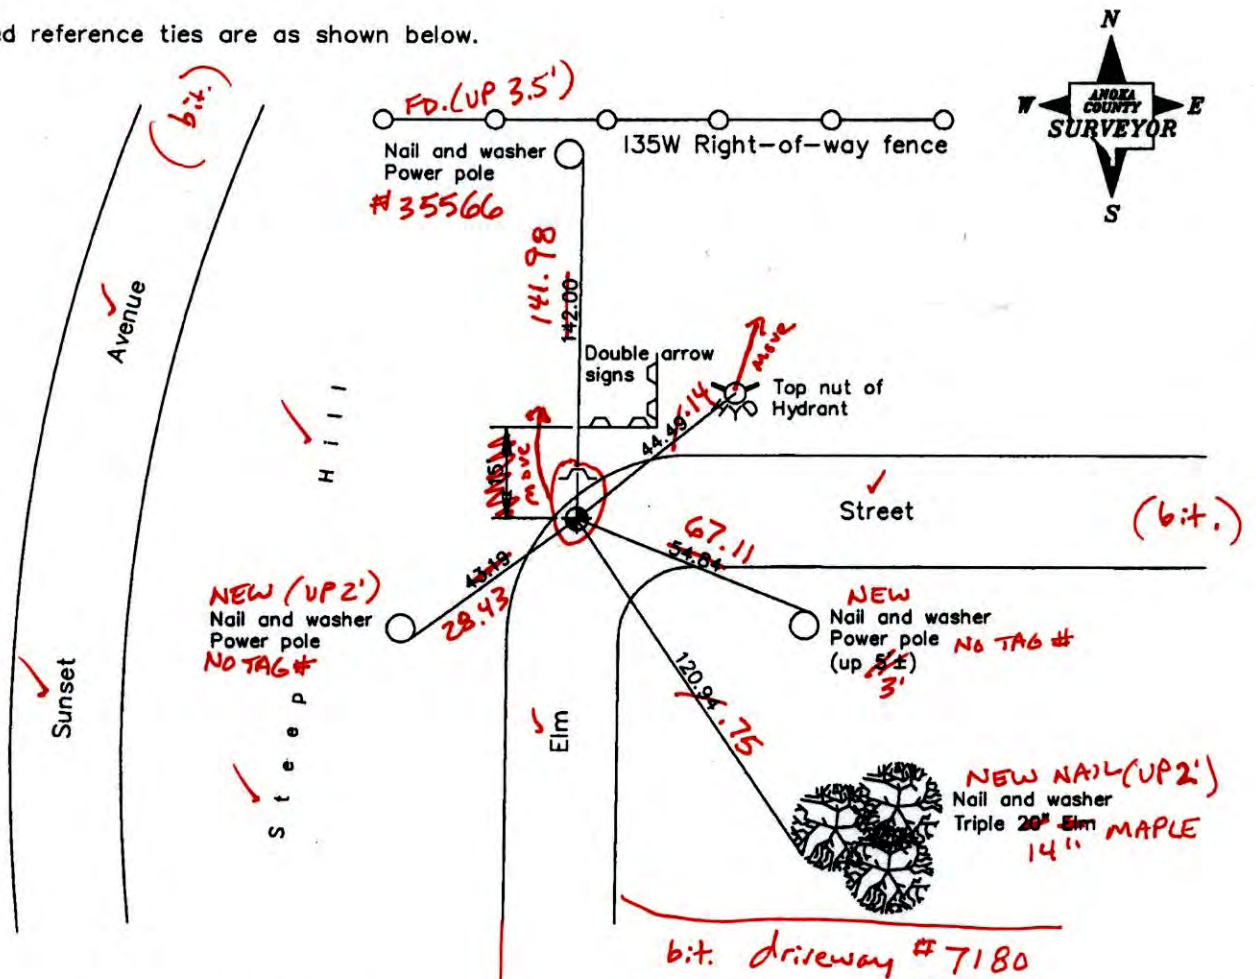 ed reference ties are as shown below.
N
W
ANOKA
COUNTY
SURVEYOR
E
S
(bit.)
FD. (UP 3.5')
Nail and washer
Power pole
#35566
I35W Right-of-way fence
141.98
142.00
Avenue
Double arrow
signs
move
Top nut of
Hydrant
HYD
44.49
.14
Hill
15
move
Street
(bit.)
67.11
54.84
43.19
28.43
NEW (UP 2')
Nail and washer
Power pole
NO TAG #
NEW
Nail and washer
Power pole
(up 5'±)
3'
NO TAG #
Sunset
Steep
Elm
120.94
.75
NEW NAIL (UP 2')
Nail and washer
Triple 20" Elm
14" MAPLE
bit. driveway # 7180